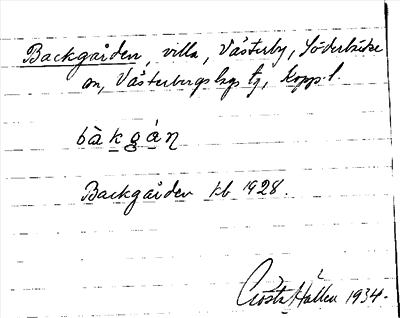 Backgården, villa, Västerby, Söderbärke
sn, Västerbergslags tg, Kopp. l.
bàkgán
Backgården kb 1928.
Gösta Hållen 1934.